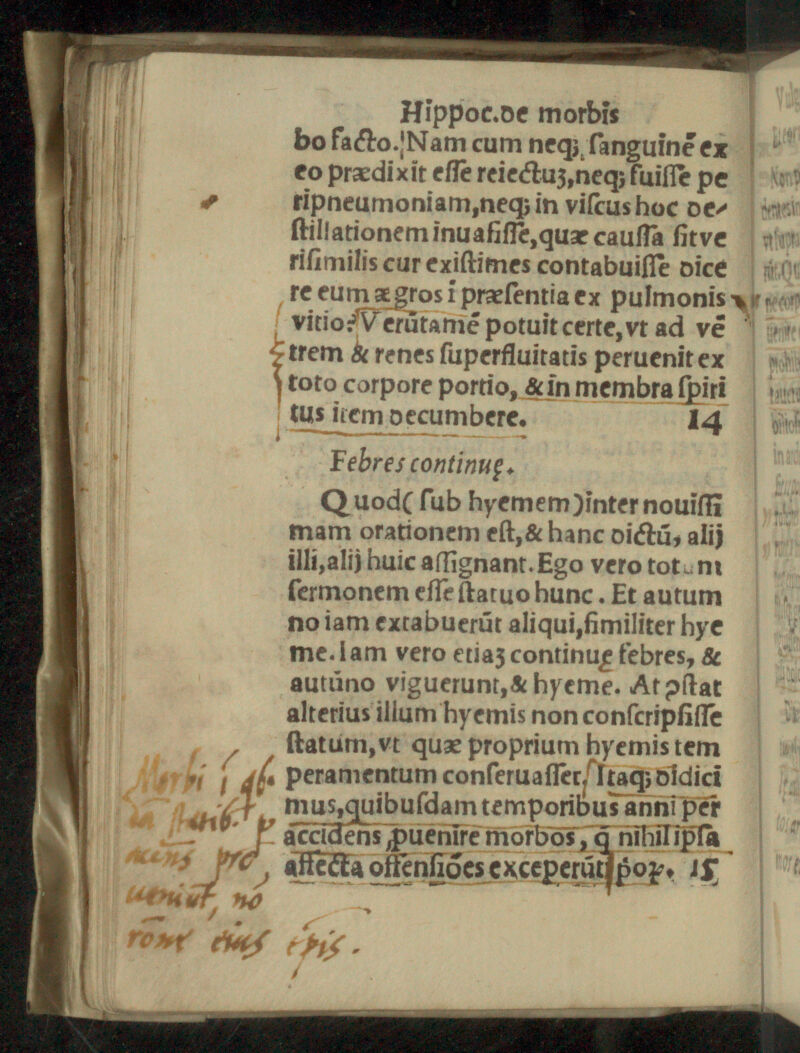 Hippoc.de morbis
bo facto.Nam cum neqꝫ sanguinē ex
eo prædixit esse reiectuꝫ,neqꝫ fuisse pe
ripneumoniam,neqꝫ in viscus hoc de⸗
stillationem inuasisse,quæ caussa sit ve
risimilis cur existimes contabuisse dice
re eum ægros ī præsentia ex pulmonis
vitio? Verūtamē potuit certe,vt ad vē
trem & renes superfluitatis peruenit ex
toto corpore portio, & in membra spiri
tus item decumbere. 14
Febres continuę.
Quod( sub hyemem )inter nouissi
mam orationem est,& hanc dictū, alij
illi,alij huic assignant.Ego vero totum
sermonem esse statuo hunc. Et autum
no iam extabuerūt aliqui,similiter hye
me.Iam vero etiaꝫ continuę febres, &
autūno viguerunt,& hyeme. At ꝯstat
alterius illum hyemis non conscripsisse
statum,vt quæ proprium hyemis tem
peramentum conseruasset. Itaqꝫ didici
mus,quibusdam temporibus anni per
accidens ꝓuenire morbos, q̄ nihil ipsa
affecta offensiōes exceperūt ꝑoꝝ. 15
pro
ueniūt, nō
eius